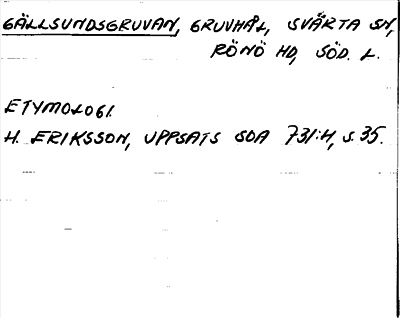 GÄLLSUNDSGRUVAN, GRUVHÅL, SVÄRTA SN,
RÖNÖ HD, SÖD. L.
ETYMOLOGI.
H. ERIKSSON, UPPSATS SOA 731:H, S. 35.